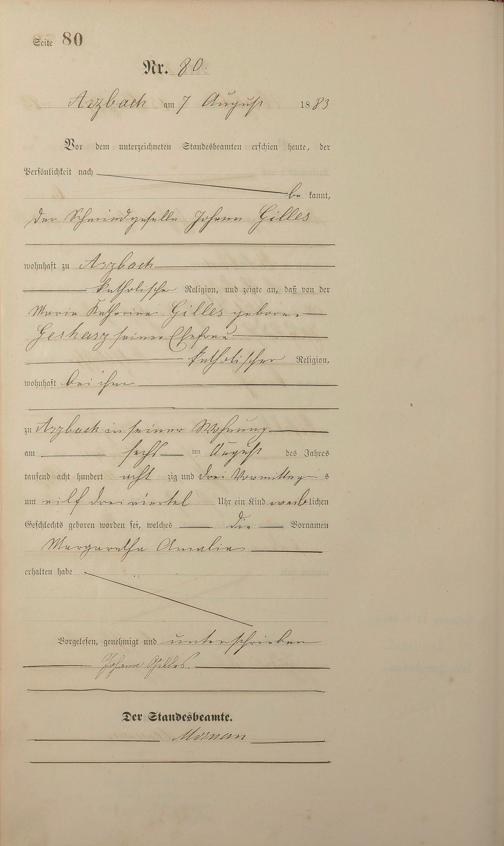 Seite 80
Nr. 80.
Arzbach am 7 August 1883
Vor dem unterzeichneten Standesbeamten erschien heute, der
Persönlichkeit nach
be kannt,
der Schmiedgeselle Johann Gilles
wohnhaft zu Arzbach
katholische Religion, und zeigte an, daß von der
Maria Katharina Gilles geborne
seiner Ehefrau
katholischer Religion,
wohnhaft bei ihm
zu Arzbach in seiner Wohnung
am sechs ten August des Jahres
tausend acht hundert acht zig und drei Vormittag s
um eilf drei viertel Uhr ein Kind weiblichen
Geschlechts geboren worden sei, welches die Vornamen
Margaretha Amalia
erhalten habe
Vorgelesen, genehmigt und unterschrieben
Johann Gilles.
Der Standesbeamte.